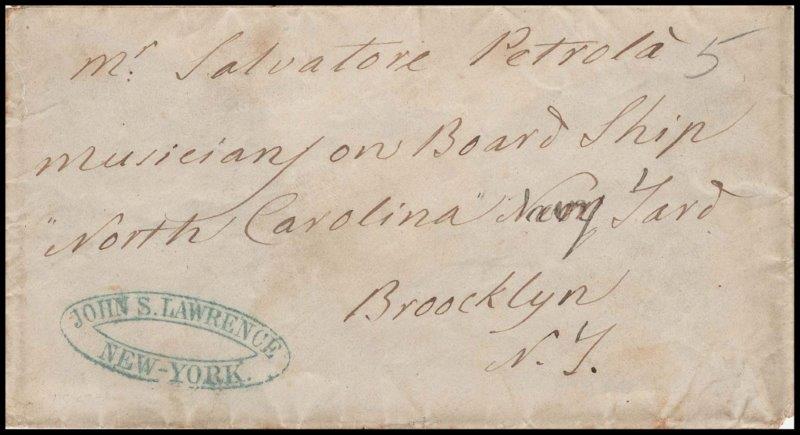 Mr Salvatore Petrolà 5
Musician on Board Ship
"North Carolina" Navy Yard
Broocklyn
N. Y.
JOHN S. LAWRENCE
NEW-YORK.